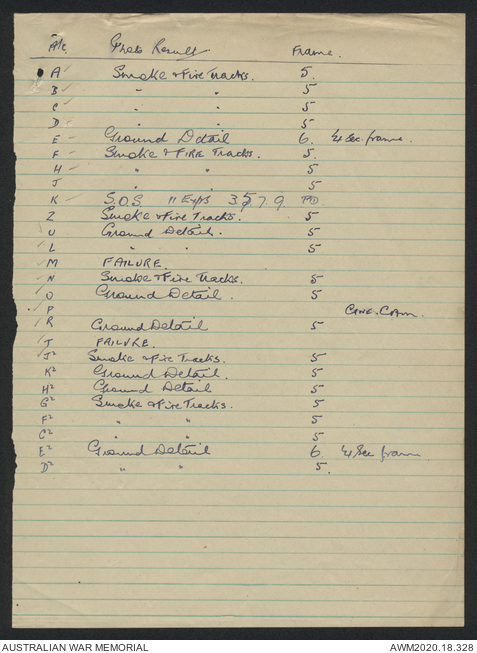 A/c. Photo Result Frame.
A Smoke & Fire Tracks. 5.
B " " 5
C " " 5
D " " 5
E Ground Detail 6. ¼ Sec. frame.
F Smoke & FIRE Tracks. 5.
H " " 5
J " 5
K S.O.S. 11 Exps 3 5 7 9
Z Smoke & Fire Tracks. 5
U Ground Details. 5
L " " 5
M FAILURE.
N Smoke & Fire Tracks. 5
O Ground Detail. 5
P CINE. CAM.
R Ground Detail 5
T FAILURE.
J² Smoke & Fire Tracks. 5
K² Ground Detail. 5
H² Ground Detail 5
G² Smoke & Fire Tracks. 5
F² " " 5
C² " " 5
E² Ground Detail 6. ¼ Sec frame
D² " " 5.
AUSTRALIAN WAR MEMORIAL AWM2020.18.328